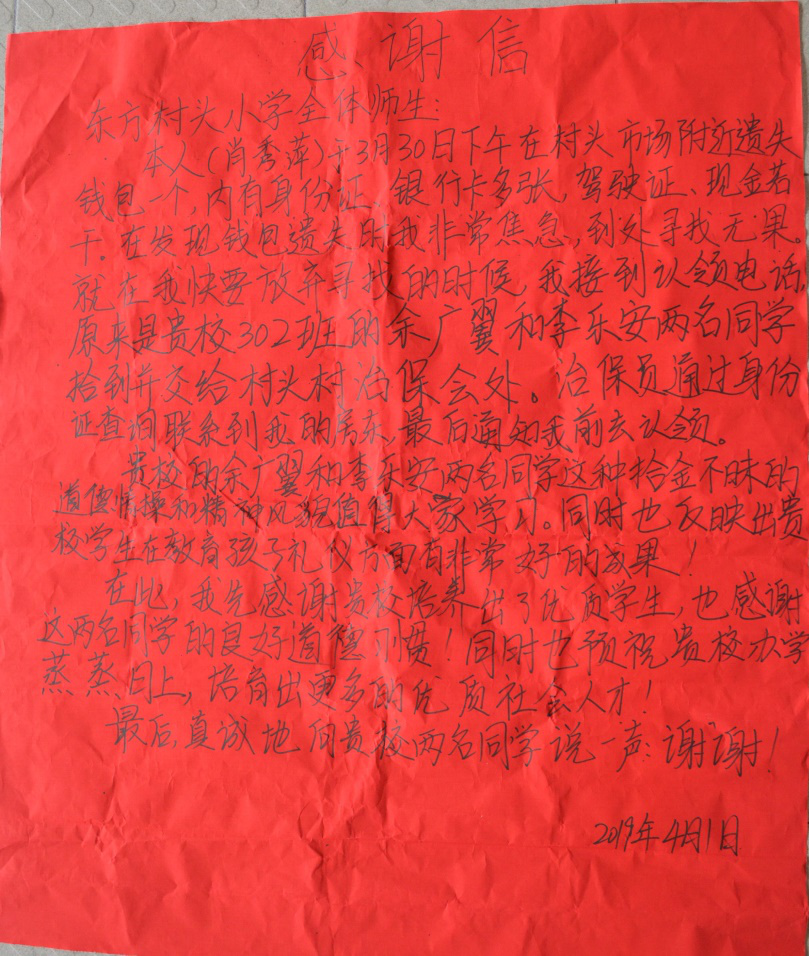 感谢信
东方村头小学全体师生：
本人（肖秀萍）于3月30日下午在村头市场附近遗失
钱包一个，内有身份证，银行卡多张，驾驶证、现金若
干。在发现钱包遗失时我非常焦急，到处寻找无果。
就在我快要放弃寻找的时候，我接到认领电话，
原来是贵校302班的余广翼和李乐安两名同学
拾到并交给村头村治保会处。治保员通过身份
证查询联系到我的房东，最后通知我前去认领。
贵校的余广翼和李乐安两名同学这种拾金不昧的
道德情操和精神风貌值得大家学习。同时也反映出贵
校学生在教育孩子礼仪方面有非常好的成果！
在此，我先感谢贵校培养出了优质学生，也感谢
这两名同学的良好道德习惯！同时也预祝贵校办学
蒸蒸日上，培育出更多的优质社会人才！
最后，真诚地向贵校两名同学说一声：谢谢！
2019年4月1日